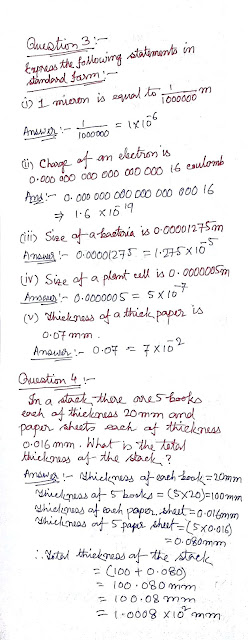 Question 3:-
Express the following statements in
standard form:-
(i) 1 micron is equal to 1/1000000 m
Answer:- 1/1000000 = 1×10⁻⁶
(ii) Charge of an electron is
0.000 000 000 000 000 000 16 coulomb
Ans:- 0.000 000 000 000 000 000 16
⇒ 1.6 × 10⁻¹⁹
(iii) Size of a bacteria is 0.00001275m
Answer:- 0.00001275 = 1.275×10⁻⁵
(iv) Size of a plant cell is 0.0000005m
Answer:- 0.0000005 = 5×10⁻⁷
(v) Thickness of a thick paper is
0.07mm.
Answer:- 0.07 = 7×10⁻²
Question 4:-
In a stack there are 5 books
each of thickness 20mm and
paper sheets each of thickness
0.016mm. What is the total
thickness of the stack?
Answer:- Thickness of each book=20mm
Thickness of 5 books = (5×20)=100mm
Thickness of each paper sheet=0.016mm
Thickness of 5 paper sheet=(5×0.016)
= 0.080mm
∴ Total thickness of the stack
= (100 + 0.080)
= 100.080mm
= 100.08mm
= 1.0008 × 10² mm